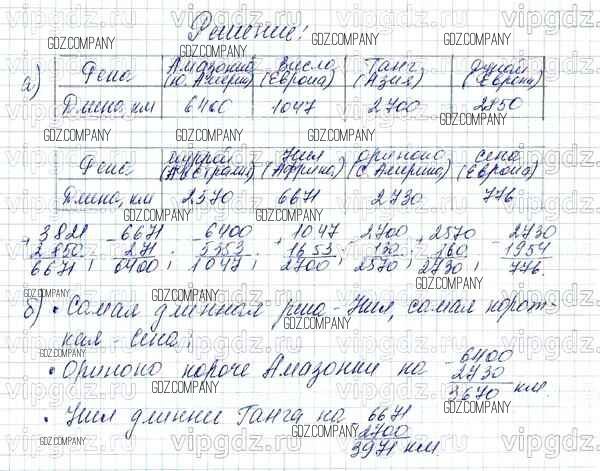 Решение:
а) Река | Амазонка (Ю. Америка) | Висло (Европа) | Ганг (Азия) | Дунай (Европа)
Длина, км | 6400 | 1047 | 2700 | 2850
Река | Муррей (Австралия) | Нил (Африка) | Ориноко (С. Америка) | Сена (Европа)
Длина, км | 2570 | 6671 | 2730 | 776
+3821 -6671 -6400 +1047 -2700 +2570 -2730
2850 271 5353 1653 130 160 1954
6671; 6400; 1047; 2700; 2570; 2730; 776.
б) • Самая длинная река - Нил, самая корот-
кая - Сена;
• Ориноко короче Амазонки на -6400
2730
3670 км.
• Нил длинне Ганга на -6671
2700
3971 км.
GDZ.COMPANY
vipgdz.ru